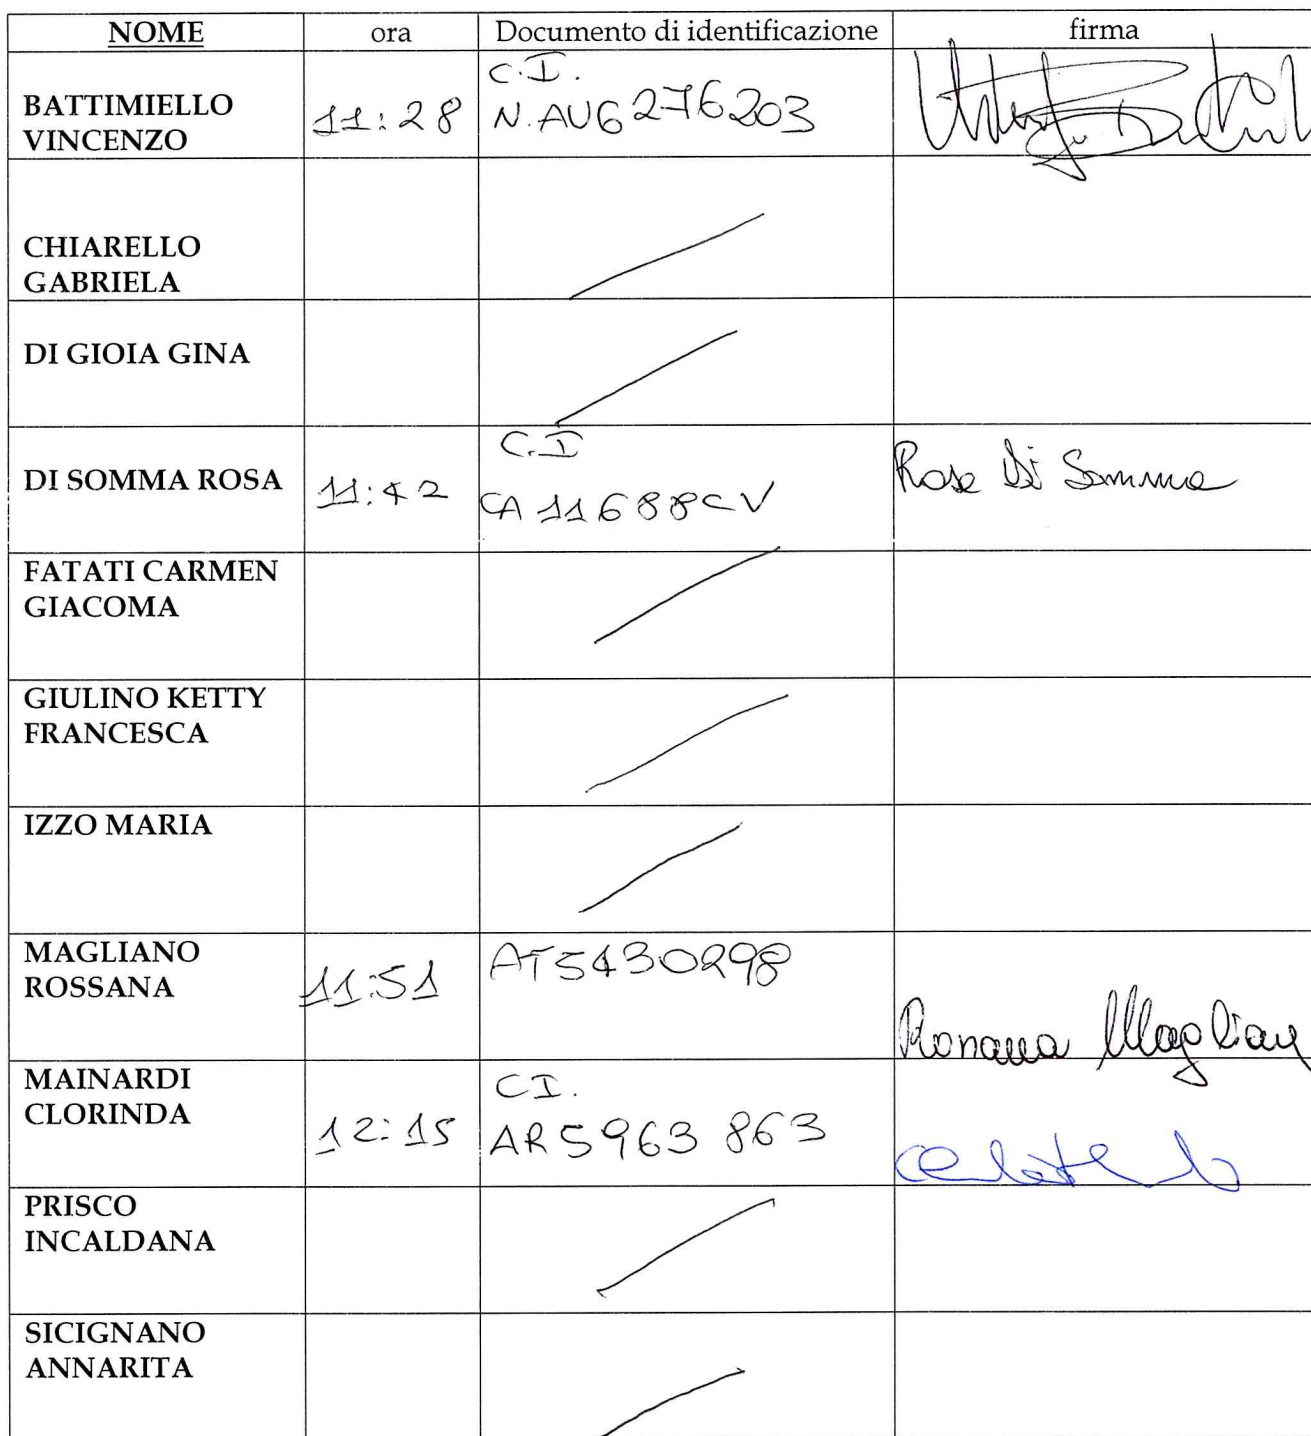 NOME ora Documento di identificazione firma
BATTIMIELLO
VINCENZO
11:28
C.I.
N. AU6276203
CHIARELLO
GABRIELA
DI GIOIA GINA
DI SOMMA ROSA
11:42
C.I
CA11688CV
Rosa Di Somma
FATATI CARMEN
GIACOMA
GIULINO KETTY
FRANCESCA
IZZO MARIA
MAGLIANO
ROSSANA
11:51
AT5430298
Rossana Magliano
MAINARDI
CLORINDA
12:15
CI.
AR5963 863
PRISCO
INCALDANA
SICIGNANO
ANNARITA